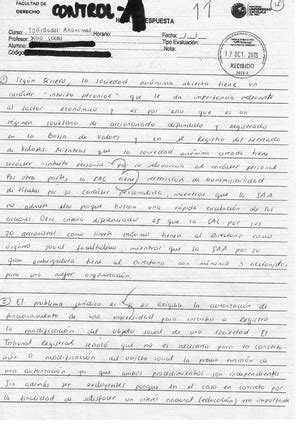 FACULTAD DE
DERECHO
CONTROL - A
11
Curso: Sociedad Anónima Horario: Fecha:
Profesor: Tipo Evaluación:
Alumno: Nota:
Código:
17 OCT. 2015
RECIBIDO
① Según Ricero, la sociedad anónima abierta tiene un
carácter "intuito pecuniae" que le da importancia relevante
al factor económico y es por ello que es un
régimen societario de accionariado difundido y registrado
en la Bolsa de Valores en el Registro del mercado
de Valores. Mientras que la sociedad anónima cerrada tiene
carácter intuito persona por su relevancia al carácter personal
Por otra parte, la SAC tiene restricción de transmisibilidad
de títulos por su carácter personalista mientras que la SAA
no admite ello porque buscan una rápida circulación de sus
acciones. Otro criterio diferenciador es que la SAC por sus
20 accionistas como límite máximo tienen al Directorio como
órgano social facultativo mientras que la SAA por su
gran envergadura tiene al Directorio con mínimo 3 accionistas
para una mejor organización.
② El problema jurídico es si es exigible la autorización de
funcionamiento de una universidad para inscribir a registro
la modificación del objeto social de una sociedad. El
Tribunal Registral señaló que no es necesario para la constitu-
ción o modificación del objeto social la previa emisión de
una autorización ya que ambos procedimientos son independientes
sin además ser excluyentes porque en el caso en concreto por
la finalidad de satisfacer un interés nacional (educación) era importante